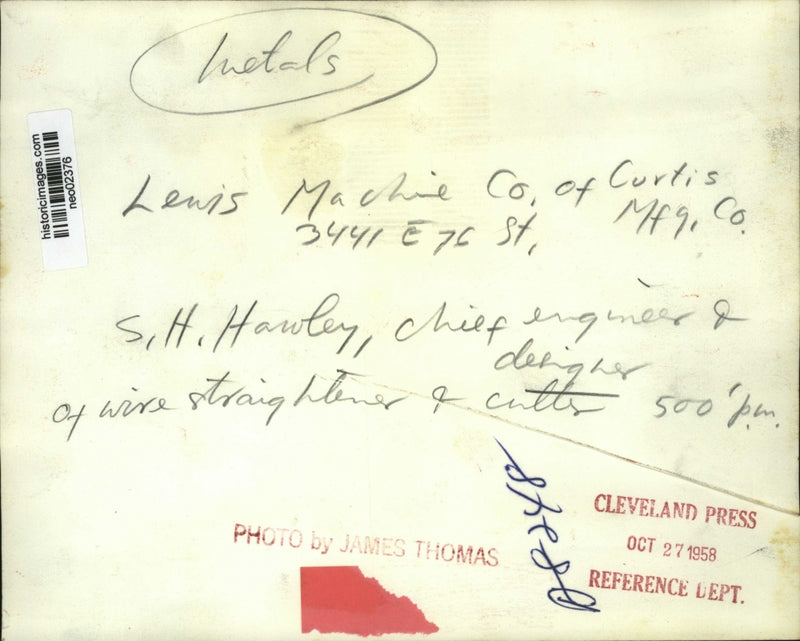 Metals
historicimages.com
neo02376
Lewis Machine Co. of Curtis
Mfg, Co.
3441 E 76 St,
S, H. Hawley, chief engineer &
designer
of wire straightener & cutter 500' p.m.
PHOTO by JAMES THOMAS
CLEVELAND PRESS
OCT 27 1958
REFERENCE DEPT.